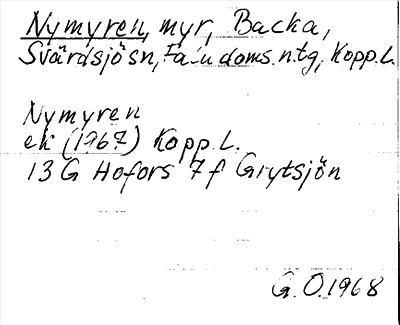 Nymyren, myr, Backa,
Svärdsjösn, Falu doms.n.tg, Kopp.L.
Nymyren
ek (1967) Kopp.L.
13 G Hofors 7f Grytsjön
G.O.1968